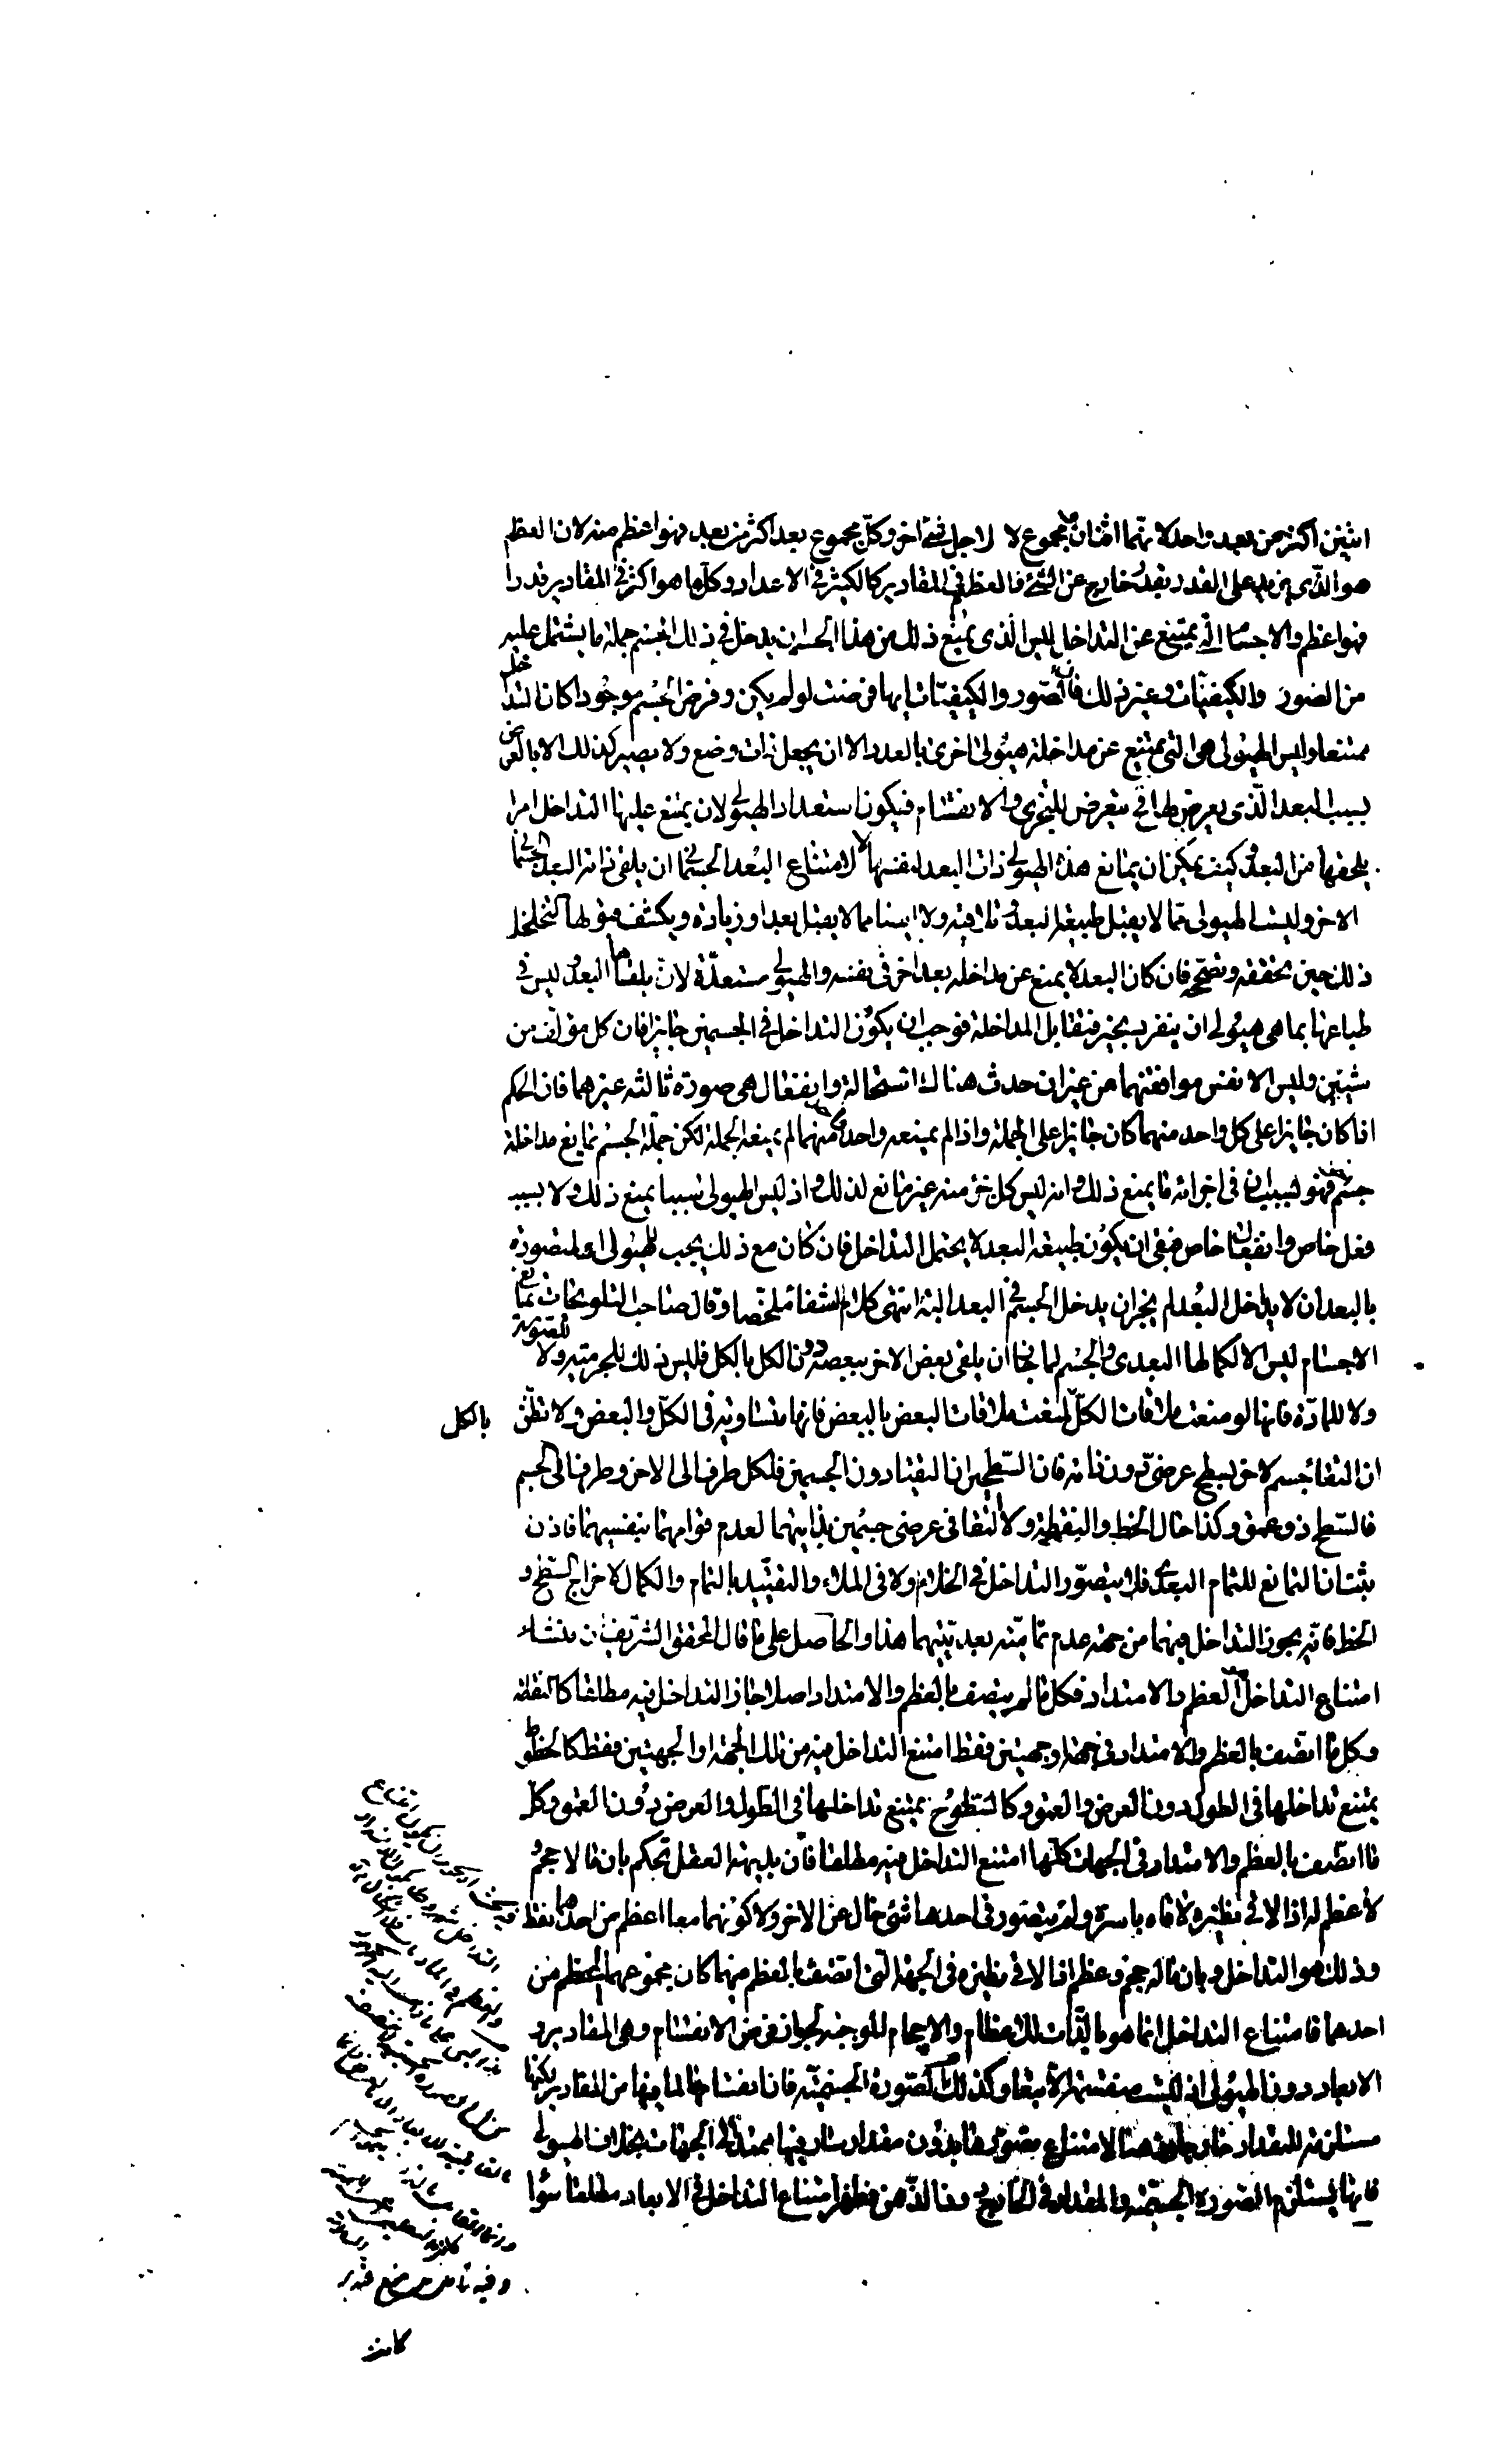 اثنين اكثر من بعد واحد لانهما اثنان مجموع لا لاجل شئ اخر وكل مجموع بعد اكثر من بعد فهو اعظم منه لان العظم
هو الذى يزيد على القدر بقدر خارج عن الشئ فالعظم فى المقادير كالكثير فى الاعداد وكل ما هو اكثر فى المقادير قدرا
فهو اعظم والاجسام التى يمتنع عن التداخل ليس الذى يمنع ذلك من هذا الجسم ان يدخل فى ذلك الجسم جملة ما يشتمل عليه
من الصور والكيفيات وغير ذلك فان الصور والكيفيات ايها فرضت لو لم يكن وفرض الجسم موجودا كان التداخل
ممتنعا وليس الهيولى هى التى يمتنع عن مداخلة هيولى اخرى بالعدد الا ان يجعل ذات وضع ولا يصير كذلك الا بالعرض
بسبب البعد الذى يعرض لها فح يتعرض للتجزى والانقسام فيكون استعداد الهيولى لان يمتنع عليها التداخل امرا
يلحقها من البعد وكيف يمكن ان يمانع هذه الهيولى ذات البعد لنفسها لا لامتناع البعد الجسمانى ان يلقى ذاته البعد الجسمانى
الاخر وليست الهيولى مما لا يقبل طبيعة البعد ولا ايضا مما لا يقبل بعدا وزيادة ويكشف من لها التخلخل
ذلك حين نحققه ونصححه فان كان البعد لا يمنع عن مداخلة بعد اخر فى نفسه والهيولى مستعدة لان يلقاها البعد وليس فى
طباعها بما هى هيولى ان ينفرد بحيز فتقابل المداخلة فوجب ان يكون التداخل فى الجسمين جايزا فان كل مؤلف من
شيئين وليس الا نفس موافقتهما من غير ان حدث هناك استحالة وانفعال هى صورة ثالثة غيرهما فان الحكم
اذا كان جايزا على كل واحد منهما كان جايزا على الجملة واذا لم يمنعه واحد منهما لم يمنعه الجملة لكن جملة الجسم تمانع مداخلة
جسم فهو لسبب ان فى اجزائه ما يمنع ذلك وانه ليس كل جزء منه غير مانع لذلك واذ ليس الهيولى سببا يمنع ذلك ولا بسبب
فعل خاص وانفعال خاص فبقى ان يكون طبيعة البعد لا يحتمل التداخل فان كان مع ذلك يجب للهيولى المتصورة
بالبعد ان لا يداخل البعد لم يجز ان يدخل الجسم فى البعد البتة انتهى كلام الشفا ملخصا وقال صاحب التلويحات تمانع
الاجسام ليس الا لكمالها البعدى والجسم لما جاز ان يلقى بعض الاخر ببعضه دون الكل بالكل فليس ذلك للجرمية ولا للصورة
ولا للمادة فانها لو منعت ملاقات الكل لمنعت ملاقات البعض بالبعض فانها متساوية فى الكل والبعض ولا تظن بالكل
ان التقا جسم لاخر بسطح عرضى دون ذاته فان السطحين ان التقيا دون الجسمين فلكل طرف الى الاخر وطرف الى الجسم
فالسطح ذو عمق وكذا حال الخط والنقطة ولا التقا فى عرضى جسمين بذاتيهما لعدم قوامهما بنفسيهما فاذن
يثبت ان التمانع للتمام البعدى فلا يتصور التداخل فى الخلاء ولا فى الملاء والتقييد بالتمام والكمال لاخراج السطح و
الخط فانه يجوز التداخل فيهما من جهة عدم تمامية بعديتهما هذا والحاصل على ما قال المحقق الشريف ان منشاء
امتناع التداخل العظم والامتداد فكل ما لم يتصف بالعظم والامتداد اصلا جاز التداخل فيه مطلقا كالنقطة
وكل ما اتصف بالعظم والامتداد فى جهة او جهتين فقط امتنع التداخل فيه من تلك الجهة او الجهتين فقط كالخطوط
يمتنع تداخلها فى الطول دون العرض والعمق وكالسطوح يمتنع تداخلها فى الطول والعرض دون العمق وكل
ما اتصف بالعظم والامتداد فى الجهات كلها امتنع التداخل فيه مطلقا فان بديهة العقل تحكم بان ما لا حجم و
لا عظم له اذا لاقى نظيره لاقاه باسره ولم يتصور فى احدهما شئ خال عن الاخر ولا كونهما معا اعظم من احدهما فقط
وذلك هو التداخل وبان ما له حجم وعظم اذا لاقى نظيره فى الجهة التى اتصف بالعظم فيهما كان مجموعهما اعظم من
احدهما فامتناع التداخل انما هو بالذات للاعظام والاحجام للوجبة لجواز فرض الانقسام وهى المقادير و
الابعاد دون الهيولى اذ ليست صفتها الا تبعا وكذلك الصورة الجسمية فان انقسامها لما فيها من المقادير لكنها
مستلزمة للمقدار خارجا هنا لامتناع تصورها بدون مقدار سار فيها ممتد فى الجهات بخلاف الهيولى
فانها يستلزم الصورة الجسمية والمقدار فى الخارج دون الذهن فظهر امتناع التداخل فى الابعاد مطلقا سواء
وفيه تامل
كانت